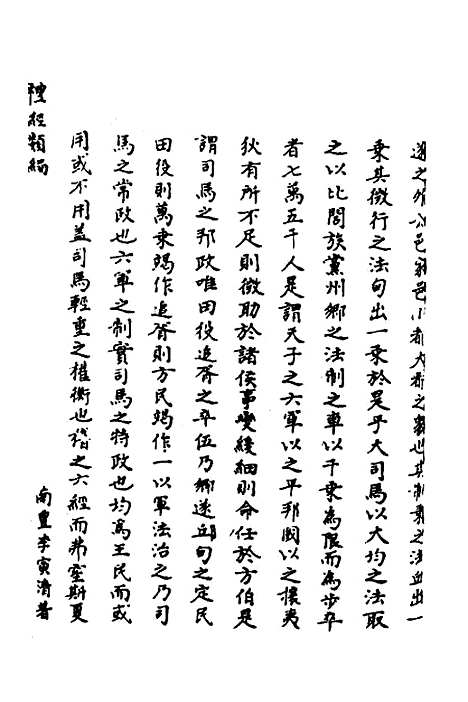 遂之外公邑家邑小都大都之類也其制乘之法丘出一
乘其徵行之法旬出一乘於是乎大司馬以大均之法取
之以比閭族黨州鄉之法制之車以千乘為限而為步卒
者七萬五千人是謂天子之六軍以之平邦國以之攘夷
狄有所不足則徵助於諸侯事變緩細則命任於方伯是
謂司馬之邦政唯田役追胥之卒伍乃鄉遂丘旬之定民
田役則萬乘竭作追胥則方民竭作一以軍法治之乃司
馬之常政也六軍之制實司馬之特政也均為王民而或
用或不用蓋司馬輕重之權衡也稽之六經而弗窒斯夏
南豐李寅清著
陣經類編